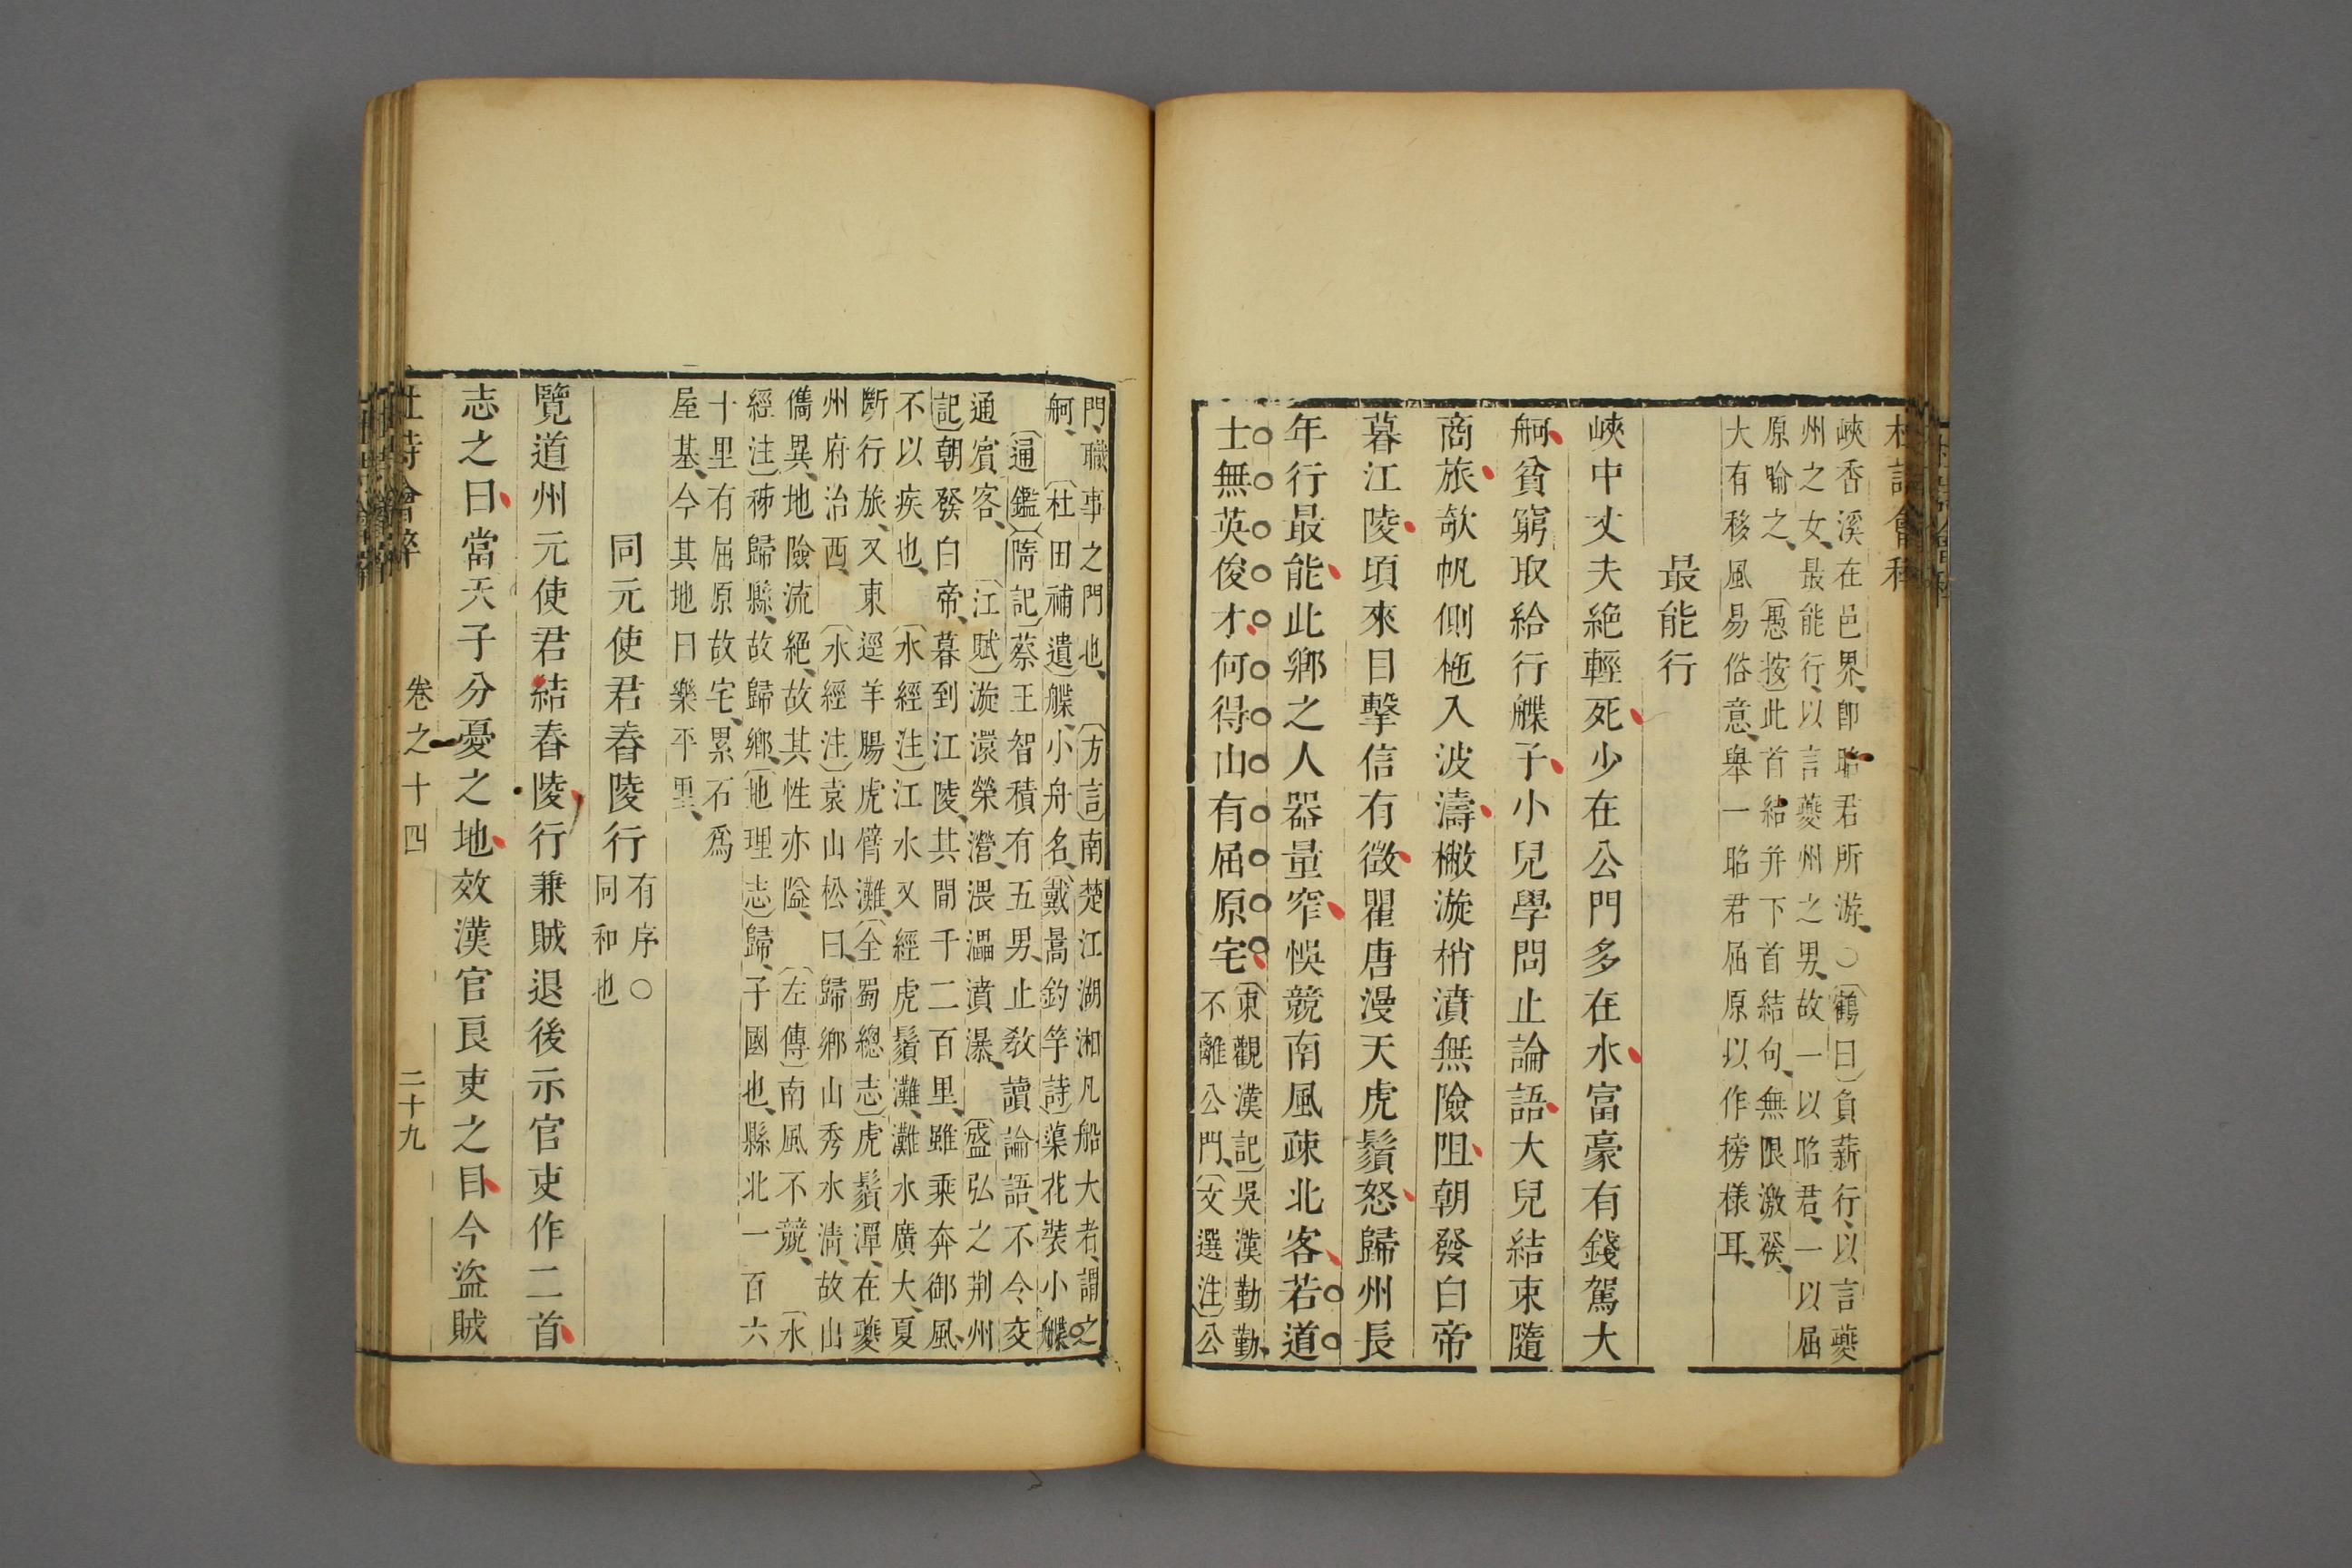 峽香溪在邑界卽昭君所游○鶴曰負薪行以言夔
州之女最能行以言夔州之男故一以昭君一以屈
原喻之愚按此首結并下首結句無限激發
大有移風易俗意舉一昭君屈原以作榜樣耳
最能行
峽中丈夫絶輕死少在公門多在水富豪有錢駕大
舸貧窮取給行艓子小兒學問止論語大兒結束隨
商旅欹帆側柂入波濤撇漩梢濆無險阻朝發白帝
暮江陵頃來目擊信有徵瞿唐漫天虎鬚怒歸州長
年行最能此鄉之人器量窄悞競南風疎北客若道
士無英俊才何得山有屈原宅
東觀漢記吳漢勤勤
不離公門文選注公
門職事之門也方言南楚江湖湘凡船大者謂之
舸杜田補遺艓小舟名戴暠釣竿詩蕖花裝小艓
通鑑隋記蔡王智積有五男止教讀論語不令交
通賓客江賦漩澴滎瀯渨㵽濆瀑盛弘之荆州
記朝發白帝暮到江陵其間千二百里雖乘奔御風
不以疾也水經注江水又經虎鬚灘灘水廣大夏
斷行旅又東逕羊腸虎臂灘全蜀總志虎鬚潭在夔
州府治西水經注袁山松曰歸鄉山秀水清故出
儁異地險流絶故其性亦隘左傳南風不競水
經注秭歸縣故歸鄉地理志歸子國也縣北一百六
十里有屈原故宅累石爲
屋基今其地曰樂平里
同元使君舂陵行
有序○
同和也
覽道州元使君結舂陵行兼賊退後示官吏作二首
志之曰當天子分憂之地效漢官良吏之目今盜賊
杜詩會稡 卷之十四 二十九